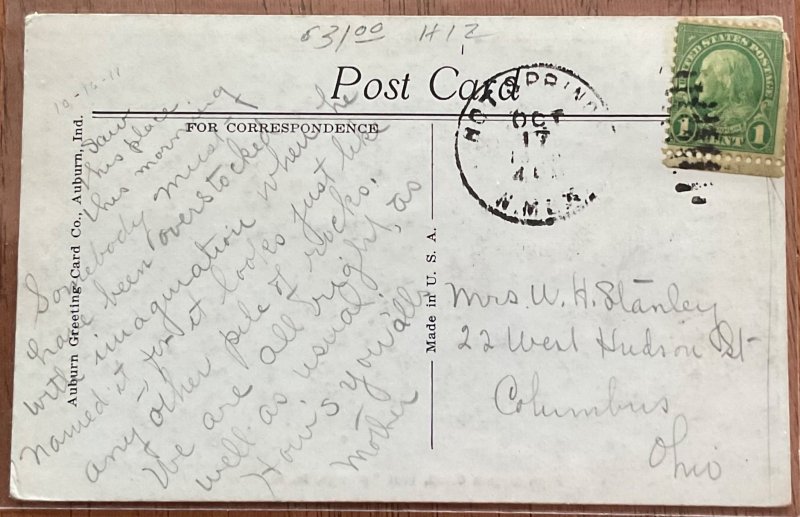 63/00 H12
10-15-11
Post Card
FOR CORRESPONDENCE
Saw
this place
this morning
Somebody must
have been overstocked
with imagination when he
named it for it looks just like
any other pile of rocks.
We are all right, as
well as usual
How's you'alls
Mother
Auburn Greeting Card Co., Auburn, Ind.
Made in U. S. A.
HOT SPRING
OCT
17
N.MEX.
UNITED STATES POSTAGE
1 CENT 1
Mrs. W. H. Stanley
22 West Hudson St
Columbus
Ohio